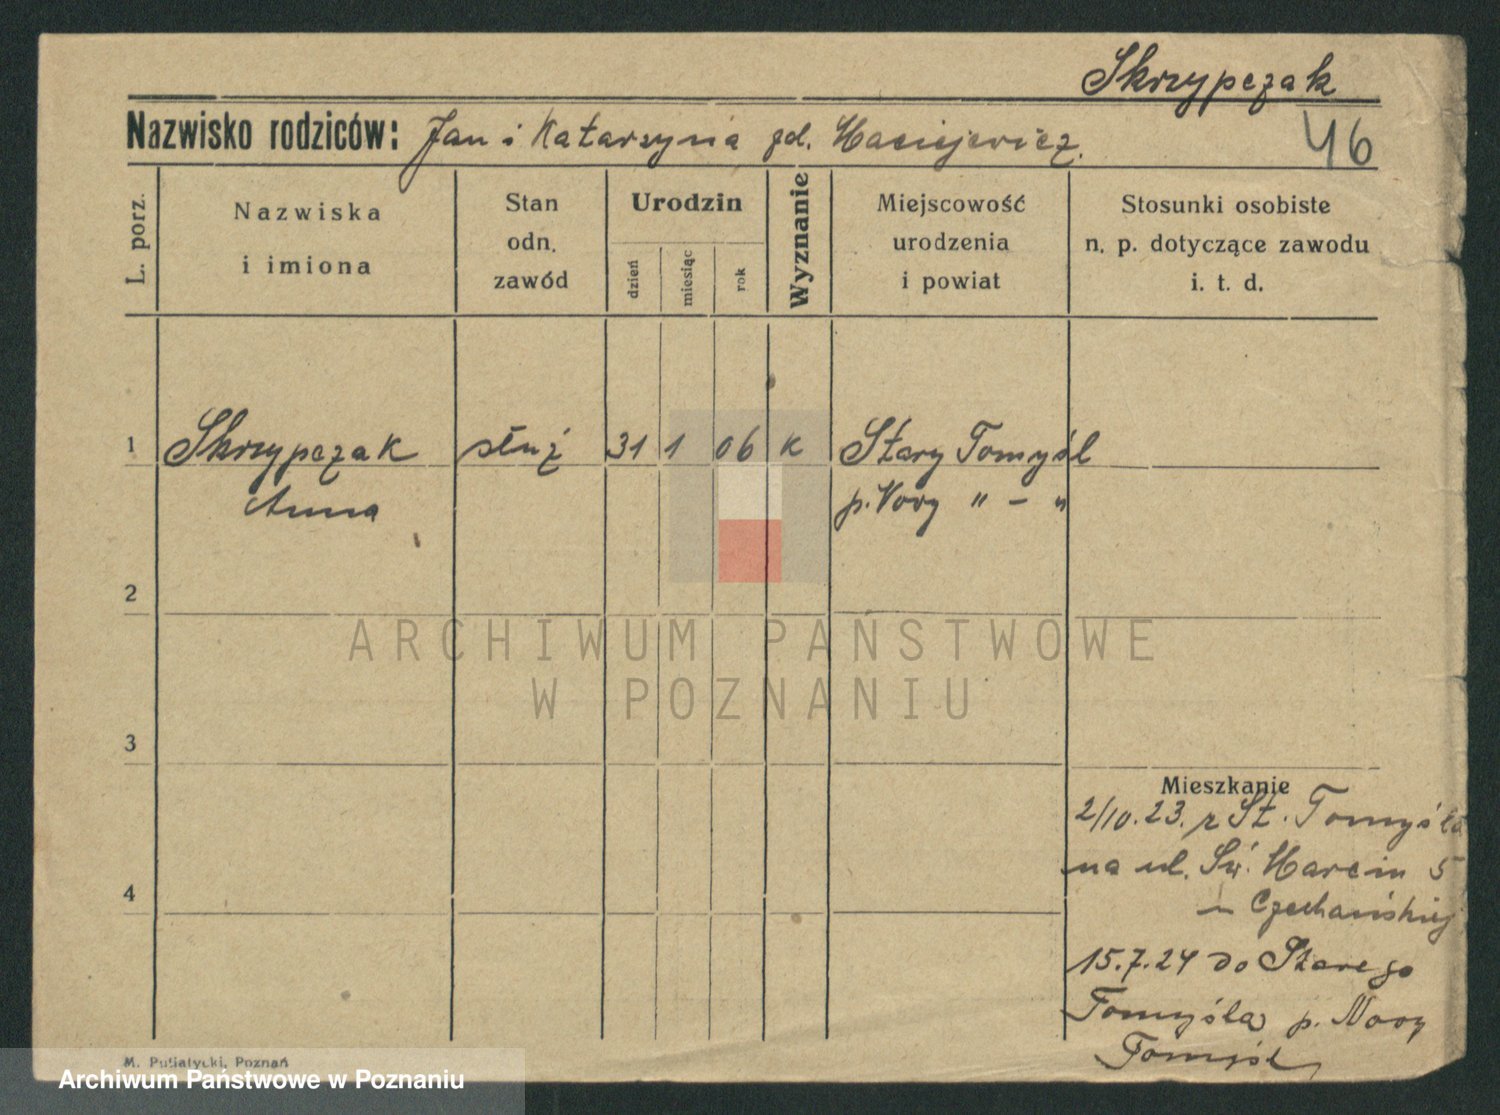 Skrzypczak
Nazwisko rodziców: Jan i Katarzyna zd. Maciejewicz.
46
L. porz.
Nazwiska
i imiona
Stan
odn.
zawód
Urodzin
dzień
miesiąc
rok
Wyznanie
Miejscowość
urodzenia
i powiat
Stosunki osobiste
n. p. dotyczące zawodu
i. t. d.
1 Skrzypczak służ 31 1 06 k Stary Tomyśl
Anna p. Nowy " — "
2
3
Mieszkanie
2/10.23. z St. Tomyśla
na ul. Św. Marcin 5
u Czechańskiej
4
15.7.24 do Starego
Tomyśla p. Nowy
Tomyśl
M. Putiatycki, Poznań
ARCHIWUM PAŃSTWOWE
W POZNANIU
Archiwum Państwowe w Poznaniu